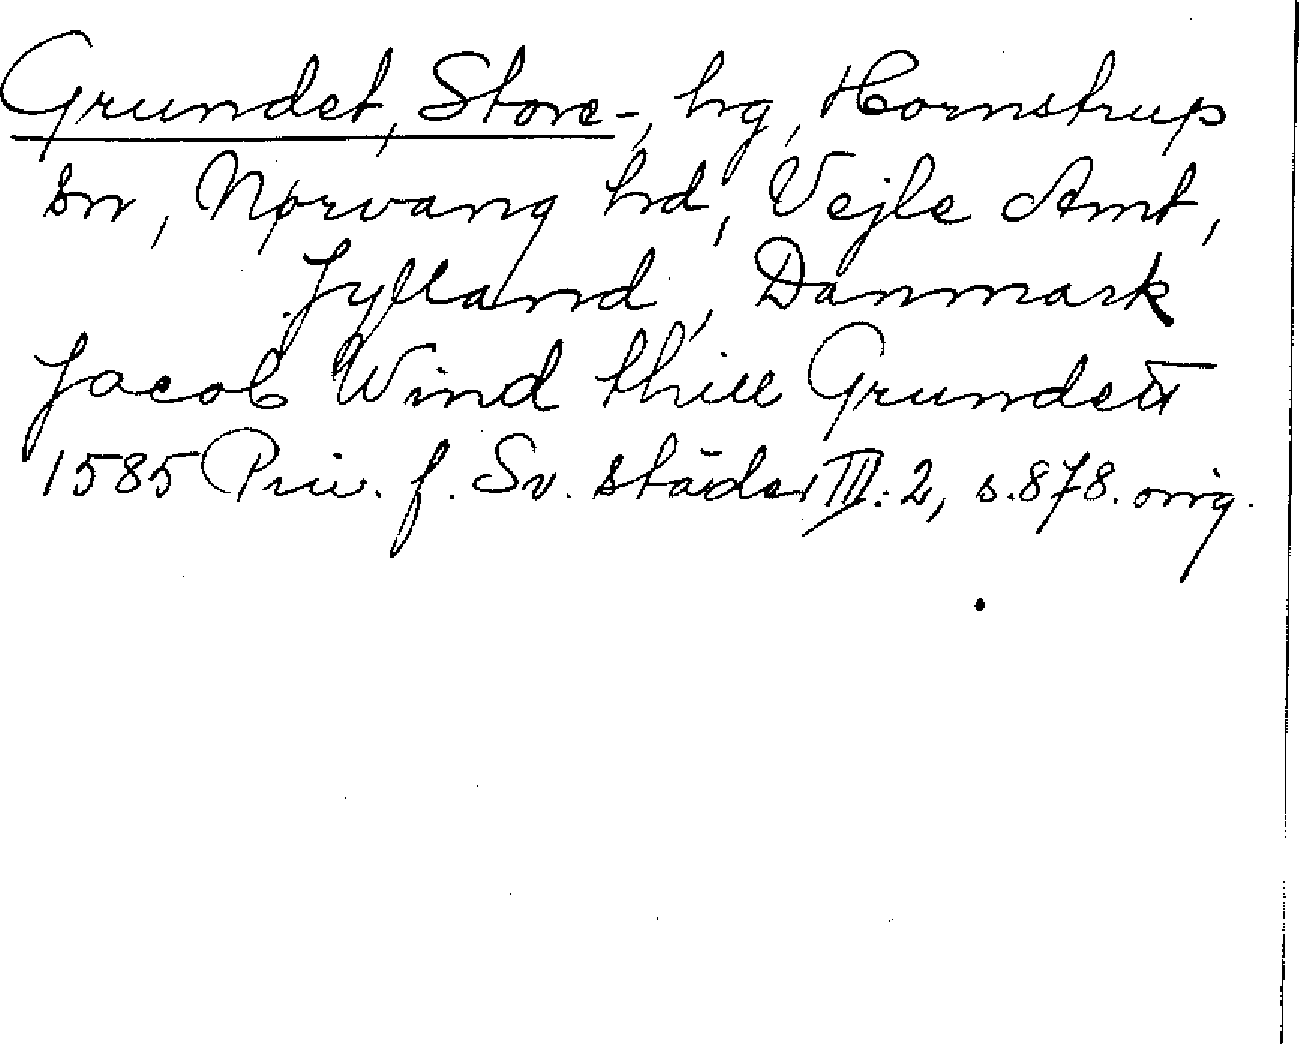 Grundet, Store-, hg, Hornstrup
sn, Nørvang hd, Vejle Amt,
Jylland, Danmark
Jacob Wind thill Grundett
1585 Priv. f. Sv. städer III:2, s.878. orig.